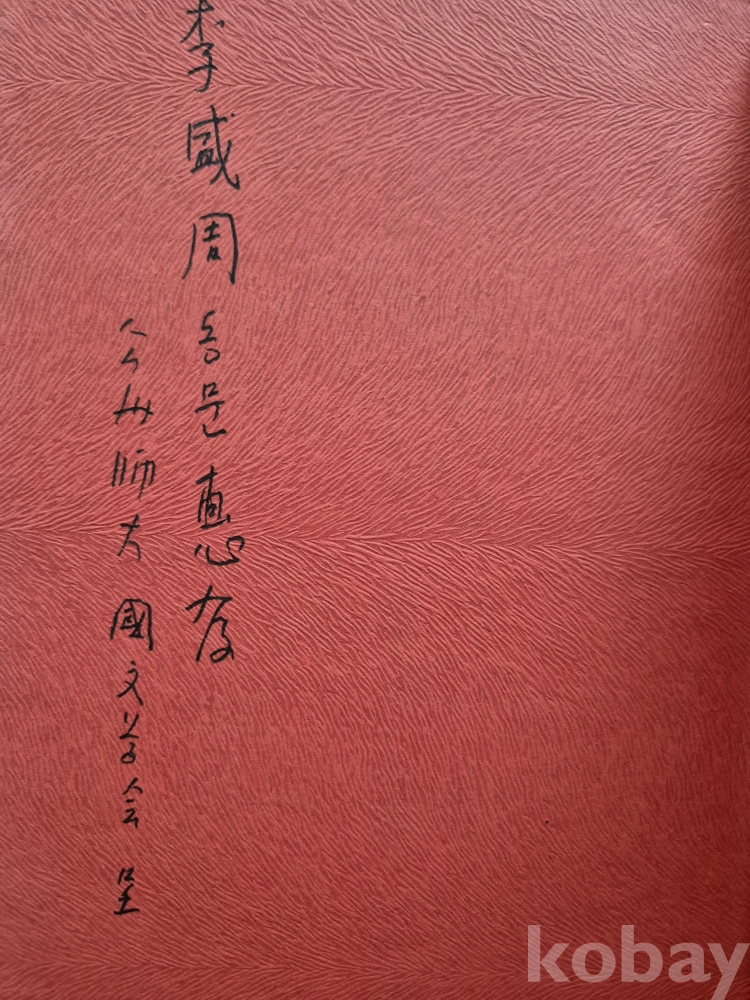 李盛周 동문 惠存
公州師大 國文学会 呈
kobay